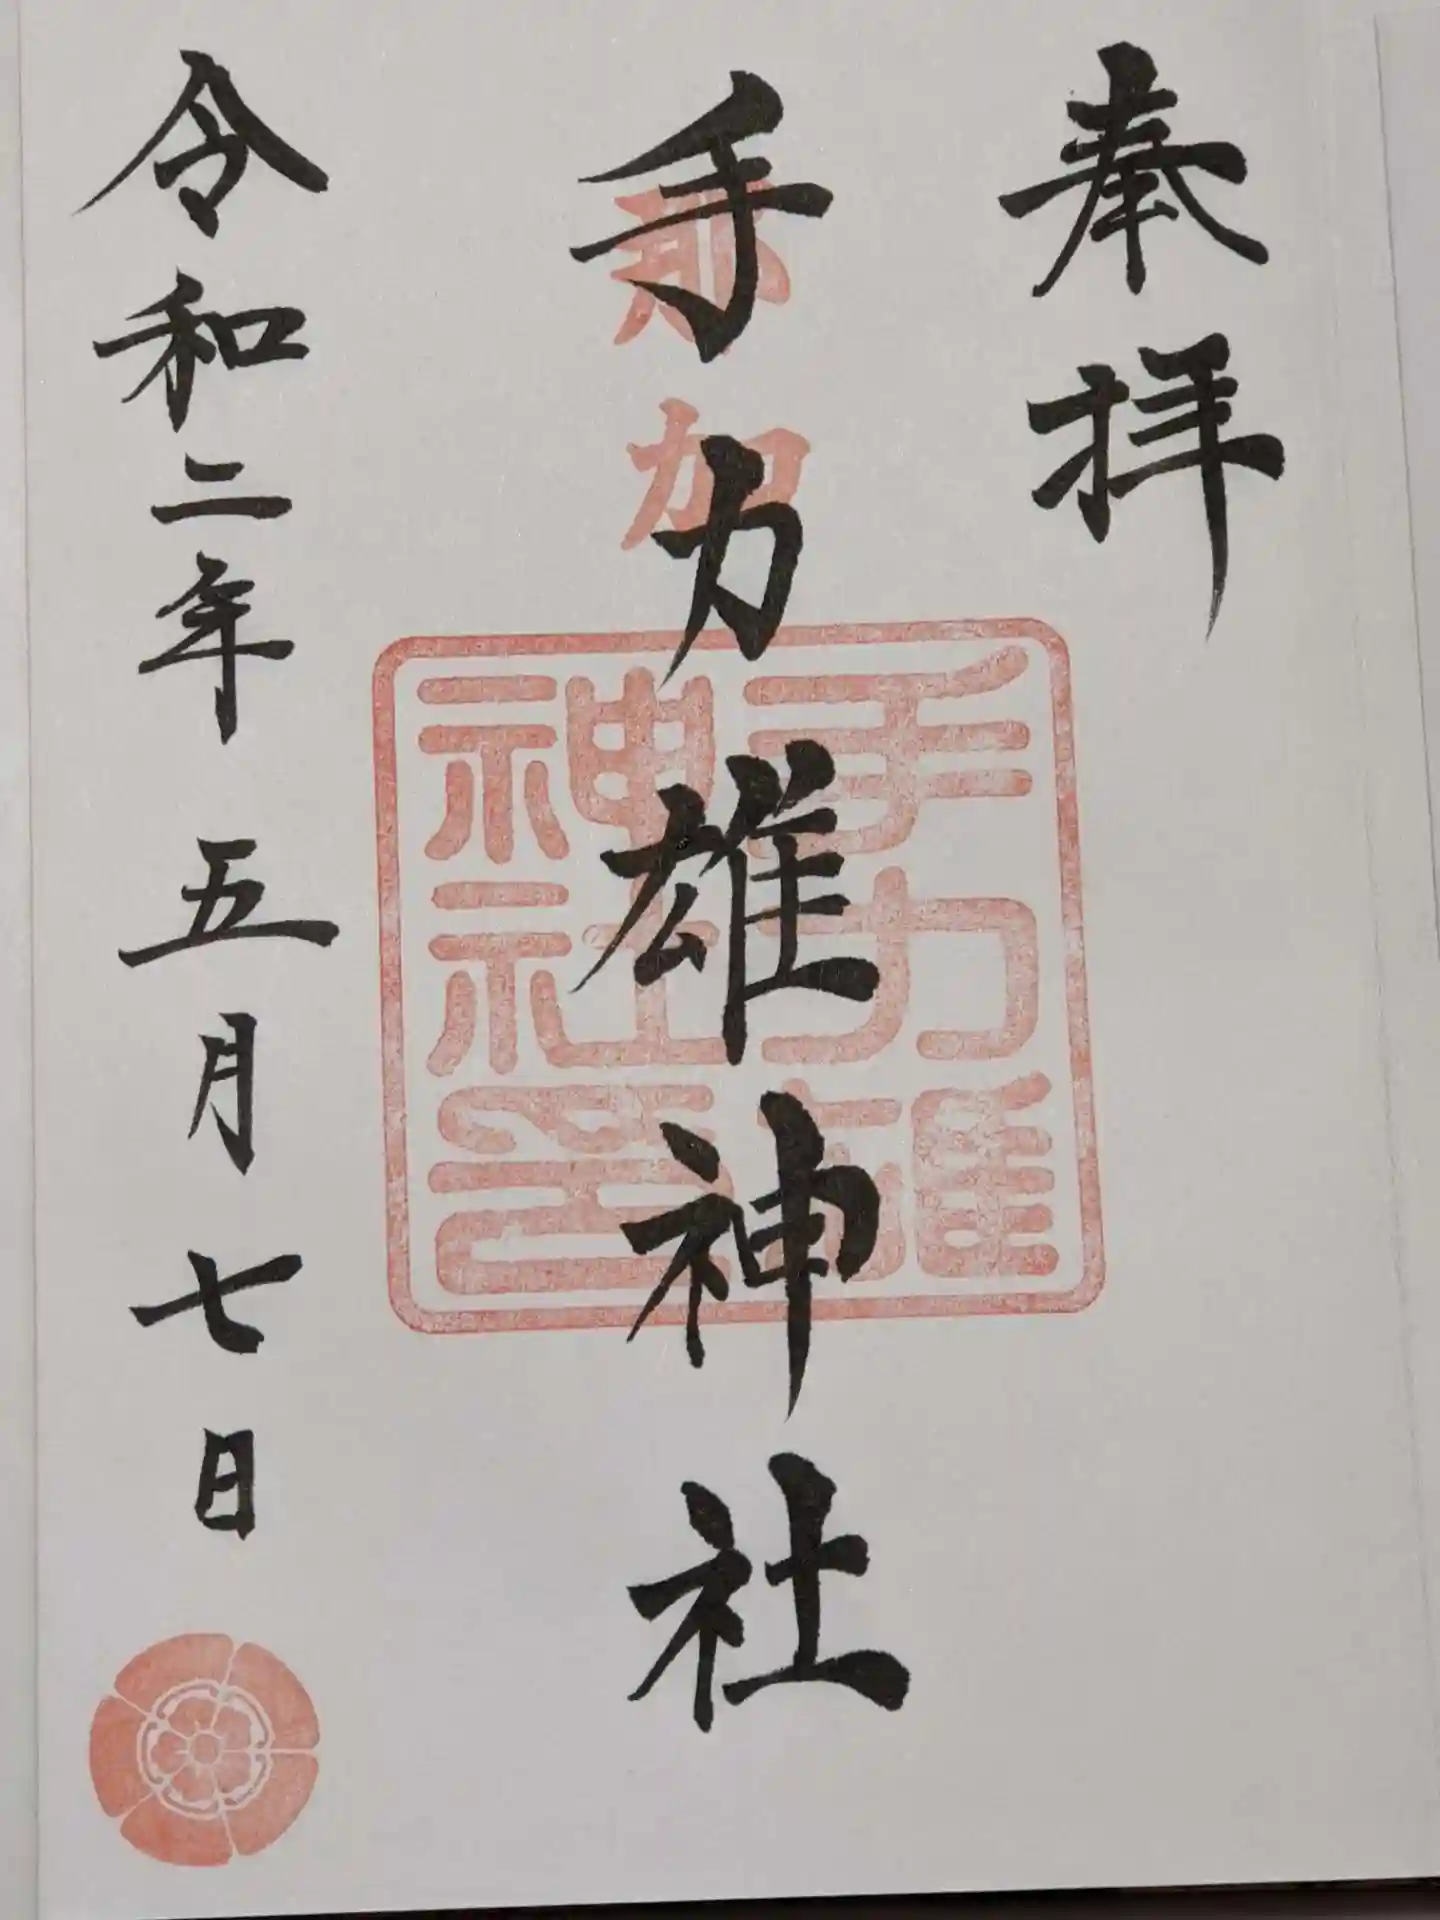 奉拝
那加
手力雄神社
手力雄
神社印
令和二年 五月七日